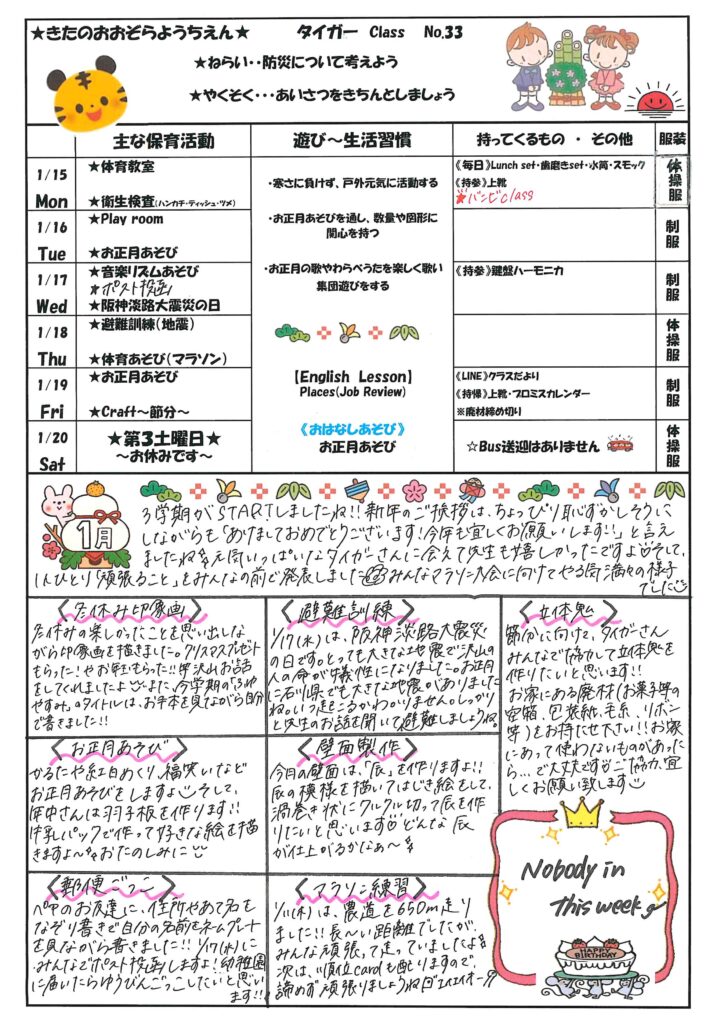 ★きたのおおぞらようちえん★ タイガー Class No.33
★ねらい‥防災について考えよう
★やくそく‥‥あいさつをきちんとしましょう
主な保育活動 遊び～生活習慣 持ってくるもの・その他 服装
1/15 Mon
★体育教室
★衛生検査(ハンカチ・ティッシュ・ツメ)
《毎日》Lunch set・歯磨きset・水筒・スモック
《持参》上靴
★バンビclass
体操服
1/16 Tue
★Play room
★お正月あそび
制服
1/17 Wed
★音楽リズムあそび
★ポスト投函
★阪神淡路大震災の日
《持参》鍵盤ハーモニカ
制服
1/18 Thu
★避難訓練(地震)
★体育あそび(マラソン)
体操服
1/19 Fri
★お正月あそび
★Craft～節分～
《LINE》クラスだより
《持帰》上靴・プロミスカレンダー
※廃材締め切り
制服
1/20 Sat
★第3土曜日★
～お休みです～
☆Bus送迎はありません
体操服
・寒さに負けず、戸外元気に活動する
・お正月あそびを通し、数量や図形に
関心を持つ
・お正月の歌やわらべうたを楽しく歌い
集団遊びをする
【English Lesson】
Places(Job Review)
《おはなしあそび》
お正月あそび
1月
3学期がSTARTしましたね!!新年のご挨拶は、ちょっぴり恥ずかしそうに
しながらも「あけましておめでとうございます!今年も宜しくお願いします!!」と言え
ましたね 元気いっぱいなタイガーさんに会えて先生も嬉しかったですよ そして、
1人ひとり「頑張ること」をみんなの前で発表しました みんなマラソン大会に向けてやる気満々の様子
でした
〈冬休み印象画〉
冬休みの楽しかったことを思い出しな
がら印象画を描きました。クリスマスプレゼント
もらった!やお年玉もらった!!等沢山お話
をしてくれましたよ また、今学期の「ふゆ
やすみ」のタイトルは、お手本を見ながら自分
で書きました!!
〈避難訓練〉
1/17(水)は、阪神淡路大震災
の日です。とっても大きな地震で沢山の
人の命が犠牲になりました。お正月
に石川県でも大きな地震がありました
ね。いつ起きるかわかりません。しっかり
と先生のお話を聞いて避難しましょうね。
〈立体鬼〉
節分に向けて、タイガーさん
みんなで協力して立体鬼を
作りたいと思います!!
お家にある廃材(お菓子等の
空箱、包装紙、毛糸、リボン
等)をお持たせ下さい!!お家
にあって使わないものがあった
ら…で大丈夫です ご協力、宜し
くお願い致します
〈お正月あそび〉
かるたや紅白めくり、福笑いなど
お正月あそびをしますよ そして、
年中さんは羽子板を作ります!!
牛乳パックで作って好きな絵を描
きますよ～ おたのしみに
〈壁面製作〉
今月の壁面は、「辰」を作りますよ!!
辰の模様を描いてはじき絵をして、
渦巻き状にクルクル切って辰を作
りたいと思います どんな辰
が仕上がるかなぁ～
〈郵便ごっこ〉
ペアのお友達に、住所やあて名を
なぞり書きで自分の名前をネームプレート
を見ながら書きました!!1/17(水)に
みんなでポスト投函しますよ!幼稚園
に届いたらゆうびんごっこしたいと思い
ます!!
〈マラソン練習〉
1/11(木)は、農道を650m走り
ました!!長～い距離でしたが、
みんな頑張って走っていましたよ
次は、順位cardも配りますので、
諦めず頑張りましょうね エイエイオー
Nobody in
this week
HAPPY
BIRTHDAY